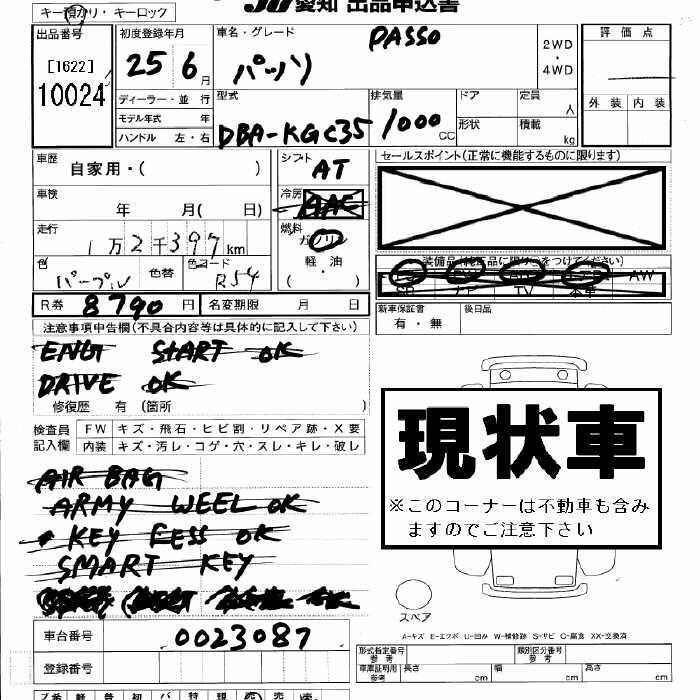 キー預かり・キーロック
JU 愛知 出品申込書
出品番号 初度登録年月 車名・グレード PASSO 評価点
[1622] 25 6月 パッソ 2WD・4WD
10024
ディーラー・並行 型式 排気量 ドア 定員 人 外装 内装
モデル年式 年 DBA-KGC35 1000 CC 形状 積載 kg
ハンドル 左・右
車歴 自家用・( ) シフト AT セールスポイント(正常に機能するものに限ります)
車検 年 月( 日) 冷房 AAC
走行 1万2千397km 燃料 ガソリン
色 パープル 色替 色コード R54 軽・油 ( ) AW
TV 本革
R券 8790円 名変期限 月 日 新車保証書 有・無 後日品
注意事項申告欄(不具合内容等は具体的に記入して下さい)
ENGT START OK
DRIVE OK
修復歴 有 (箇所 )
検査員 FW キズ・飛石・ヒビ割・リペア跡・X要
記入欄 内装 キズ・汚レ・コゲ・穴・スレ・キレ・破レ
現状車
※このコーナーは不動車も含み
ますのでご注意下さい
AIR BAG
ARMY WEEL OK
KEY FESS OK
SMART KEY
スペア
車台番号 0023087
A-キズ E-エクボ U-凹み W-補修跡 S-サビ C-腐食 XX-交換済
登録番号 形式指定番号 参考 類別区分番号 参考
車庫証明用 参考 長さ cm 幅 cm 高さ cm